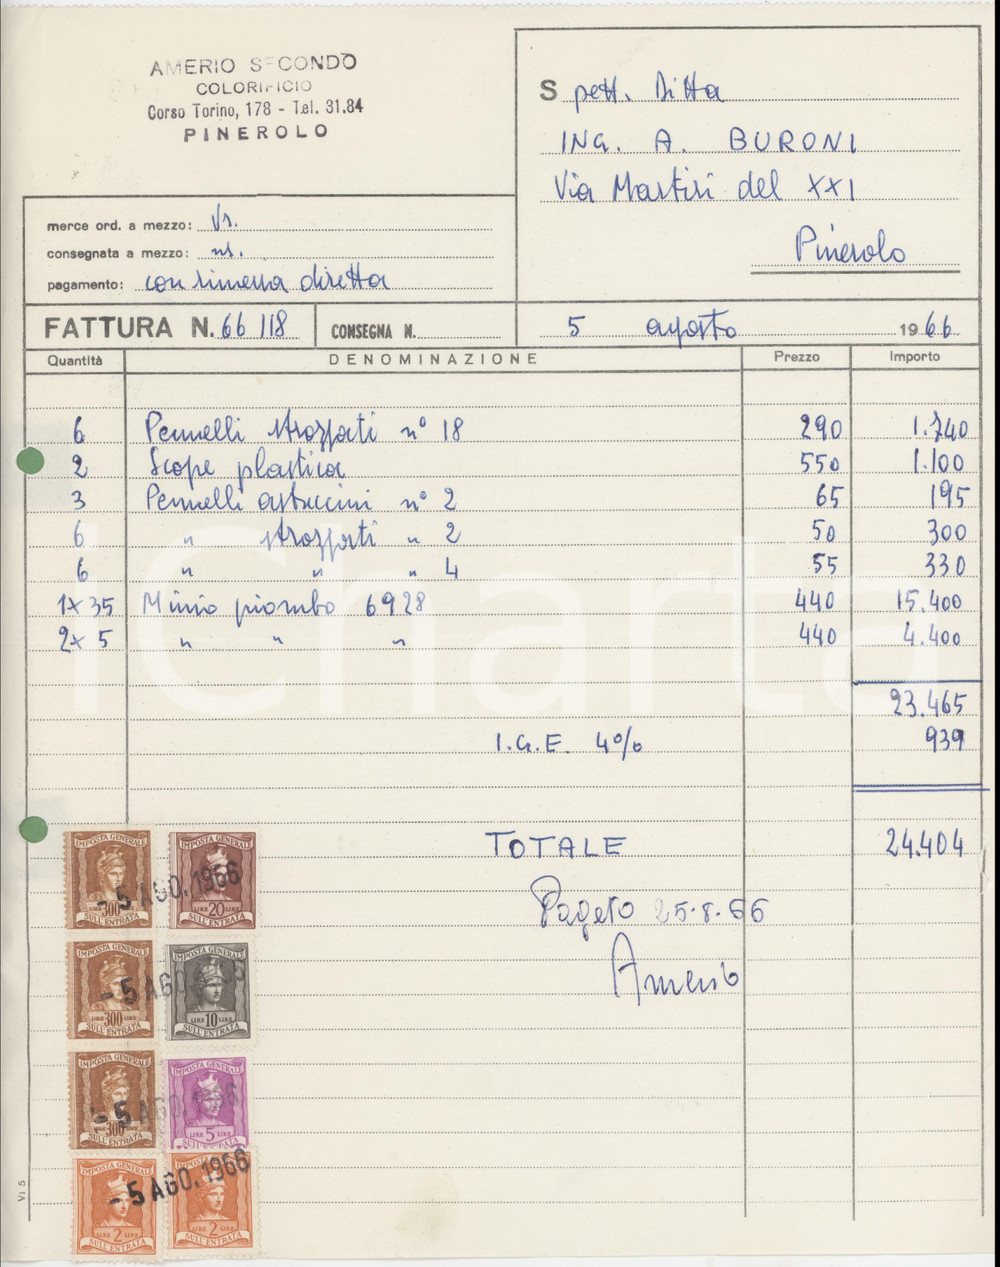 AMERIO SECONDO
COLORIFICIO
Corso Torino, 178 - Tel. 31.84
PINEROLO
Spett. Ditta
ING. A. BURONI
Via Martiri del XXI
Pinerolo
merce ord. a mezzo: Vs.
consegnata a mezzo: ns.
pagamento: con rimessa diretta
FATTURA N. 66118 CONSEGNA N. 5 agosto 1966
Quantità DENOMINAZIONE Prezzo Importo
6 Pennelli strozzati n° 18 290 1.740
2 Scope plastica 550 1.100
3 Pennelli astuccini n° 2 65 195
6 " strozzati " 2 50 300
6 " " " 4 55 330
1x35 Minio piombo 6928 440 15.400
2x5 " " " 440 4.400
iCharta
23.465
I.G.E. 4% 939
TOTALE 24.404
Pagato 25.8.66
Amerio
IMPOSTA GENERALE IMPOSTA GENERALE
-5 AGO. 1966
LIRE 300 LIRE LIRE 20 LIRE
SULL'ENTRATA SULL'ENTRATA
IMPOSTA GENERALE IMPOSTA GENERALE
-5 AGO. 1966
LIRE 300 LIRE LIRE 10 LIRE
SULL'ENTRATA SULL'ENTRATA
IMPOSTA GENERALE IMPOSTA GENERALE
-5 AGO. 1966
LIRE 300 LIRE LIRE 5 LIRE
SULL'ENTRATA SULL'ENTRATA
IMPOSTA GENERALE
-5 AGO. 1966
LIRE 2 LIRE LIRE 2 LIRE
SULL'ENTRATA SULL'ENTRATA
VI 5